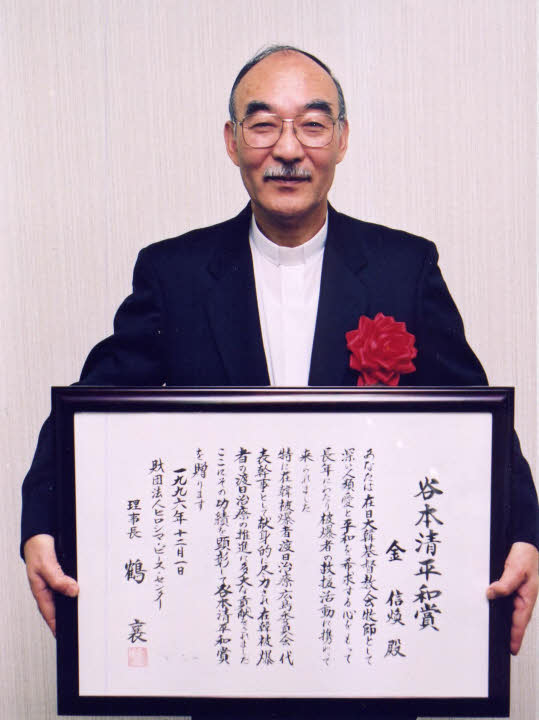 谷本清平和賞
金 信煥 殿
あなたは在日大韓基督教会牧師として
深い人類愛と平和を希求する心をもって
長年にわたり被爆者の救援活動に携わって
来られました
特に在韓被爆者渡日治療広島委員会代
表幹事として献身的に尽力され在韓被爆
者の渡日治療の推進に多大な貢献をされました
ここにその功績を顕彰して谷本清平和賞
を贈ります
一九九六年十二月一日
財団法人ヒロシマ・ピース・センター
理事長 鶴 襄